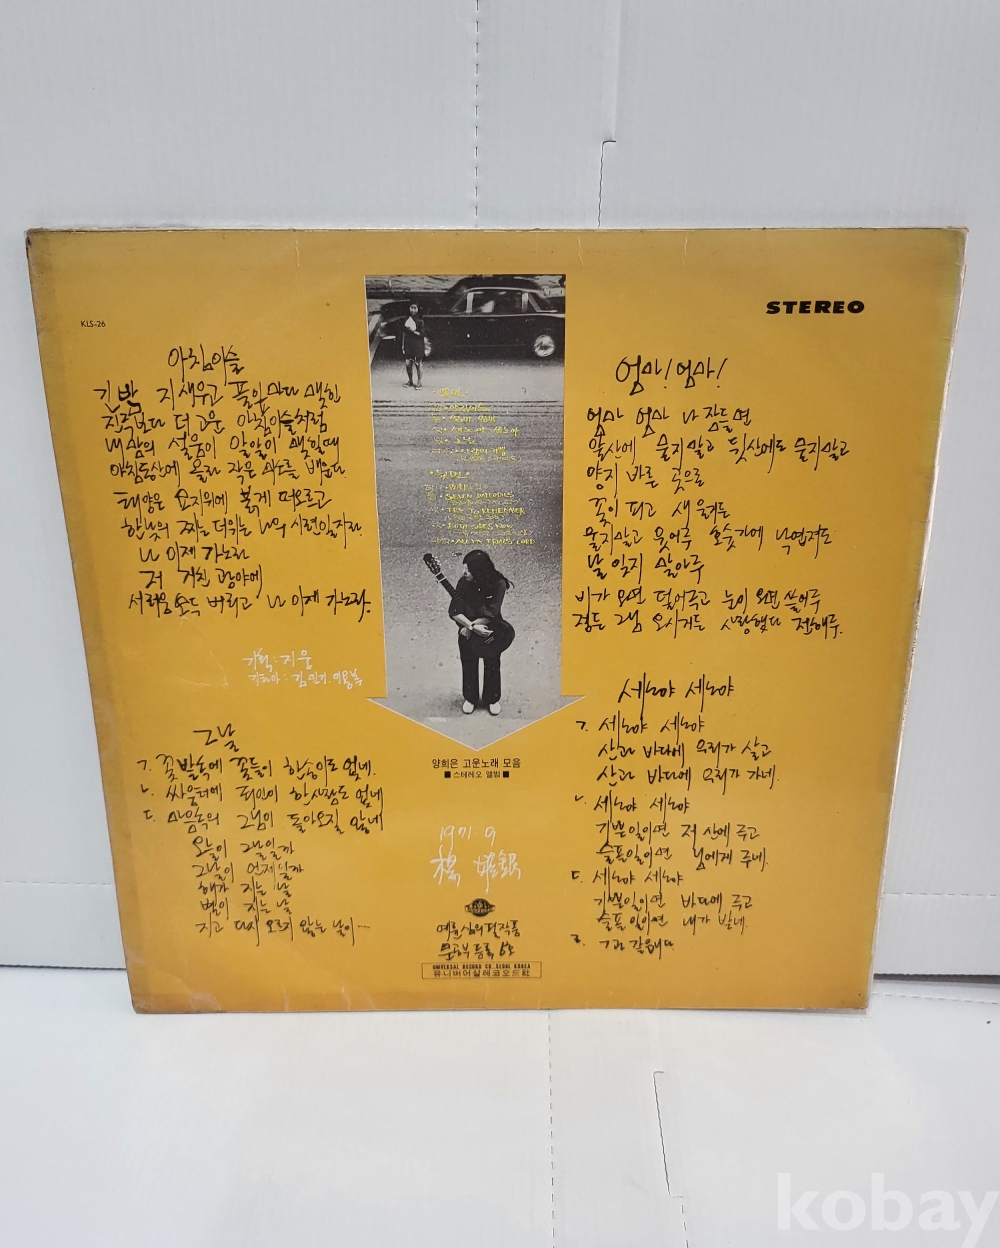 KLS-26
STEREO
아침이슬
긴밤 지새우고 풀잎마다 맺힌
진주보다 더 고운 아침이슬처럼
내 맘의 설움이 알알이 맺힐때
아침동산에 올라 작은 미소를 배운다.
태양은 묘지위에 붉게 떠오르고
한낮의 찌는 더위는 나의 시련일지라
나 이제 가노라
저 거친 광야에
서러움 모두 버리고 나 이제 가노라.
기획 : 지웅
기타아 : 김민기. 이용복
그날
ㄱ. 꽃밭속에 꽃들이 한송이도 없네.
ㄴ. 싸움터에 죄인이 한사람도 없네
ㄷ. 마음속의 그님이 돌아오질 않네
오늘이 그날일까
그날이 언제일까
해가 지는 날
별이 지는 날
지고 다시 오르지 않는 날이…
SEVEN DAFFODILS
TRY TO REMEMBER
BOTH SIDES NOW
양희은 고운노래 모음
■ 스테레오 앨범 ■
1971. 9
楊 姬銀
문공부 등록 6호
UNIVERSAL RECORD CO. SEOUL KOREA
유니버어살레코오드社
엄마! 엄마!
엄마 엄마 나 잠들면
앞산에 묻지말고 뒷산에도 묻지말고
양지 바른 곳으로
꽃이 피고 새 울거든
울지말고 웃어주 호숫가에 낙엽져도
날 잊지 말아주
비가 오면 덮어주고 눈이 오면 쓸어주
정든 그님 오시거든 사랑했다 전해주.
세노야 세노야
ㄱ. 세노야 세노야
산과 바다에 우리가 살고
산과 바다에 우리가 가네.
ㄴ. 세노야 세노야
기쁜일이면 저 산에 주고
슬픈일이면 님에게 주네.
ㄷ. 세노야 세노야
기쁜일이면 바다에 주고
슬픈일이면 내가 받네.
ㄹ. ㄱ과 같읍니다.
kobay